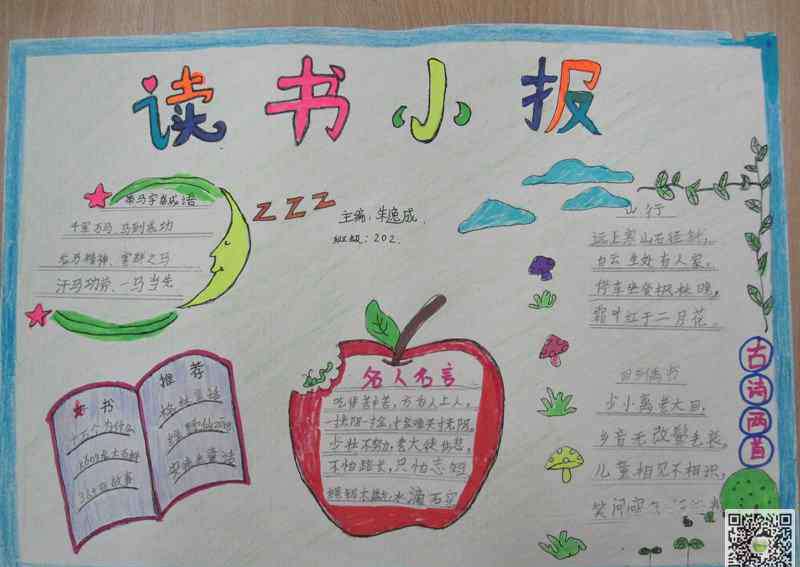 读书小报
主编:朱逸成
班级:202.
带马字成语
千军万马、马到成功
龙马精神、害群之马
汗马功劳、一马当先
好书
推荐
十万个为什么
365夜故事
格林童话
安徒生童话
名人名言
吃得苦中苦,方为人上人,
一寸光阴一寸金,寸金难买寸光阴,
少壮不努力,老大徒伤悲,
不怕路长,只怕志短
水滴石穿
山行
远上寒山石径斜,
白云生处有人家。
停车坐爱枫林晚,
霜叶红于二月花。
古诗两首
少小离老大回,
乡音无改鬓毛衰,
儿童相见不相识,
笑问